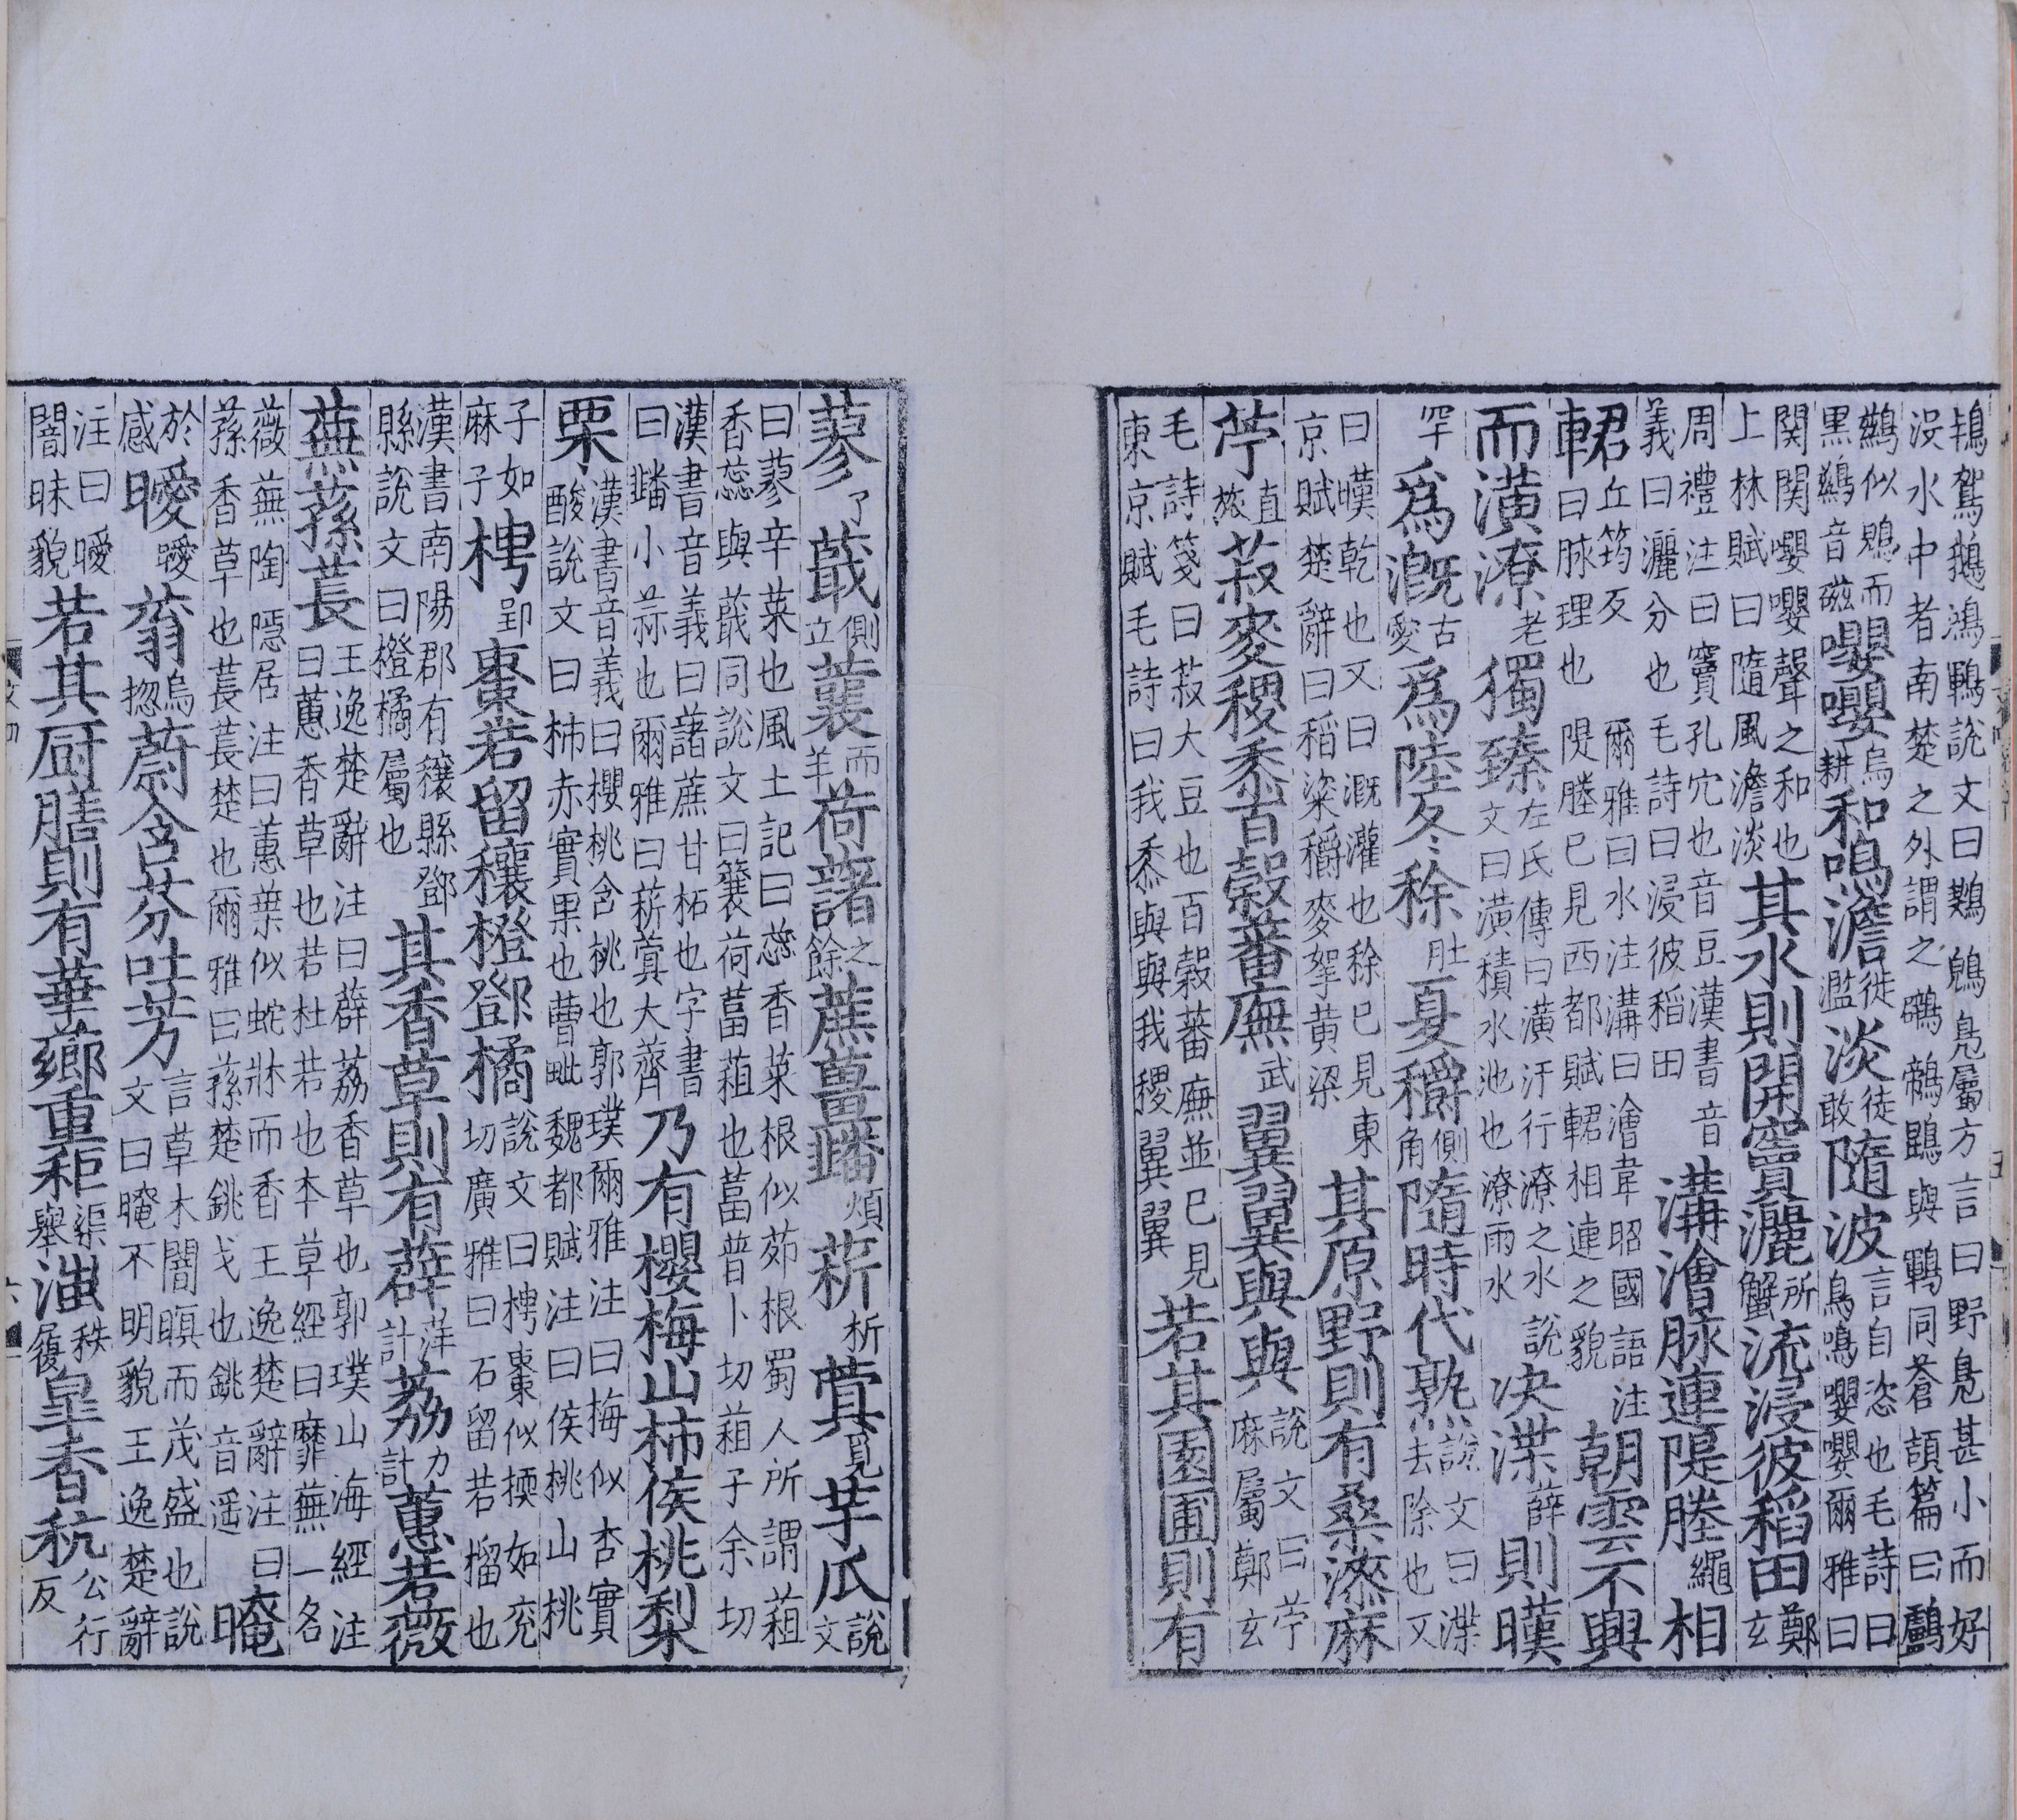 鴇鴐鵝鴻鶤說文曰鷜鴢鳧屬方言曰野鳧甚小而好
沒水中者南楚之外謂之鷿鷉鷉與鶙同蒼頡篇曰鸕
鷀似鶂而黑鷀音磁嚶嚶烏耕和鳴澹徒濫淡徒敢隨波言自恣也毛詩曰鳥鳴嚶嚶爾雅曰
關關嚶嚶聲之和也上林賦曰隨風澹淡其水則開竇灑所蟹流浸彼稻田鄭玄
周禮注曰竇孔穴也音豆漢書音義曰灑分也毛詩曰浸彼稻田溝澮脉連隄塍繩相
輑丘筠反爾雅曰水注溝曰澮韋昭國語注曰脉理也隄塍已見西都賦輑相連之貌朝雲不興
而潢潦老獨臻左氏傳曰潢汙行潦之水說文曰潢積水池也潦雨水决渫薛則暵
罕爲溉古愛爲陸冬稌肚夏穱側角隨時代熟說文曰渫去除也又
曰暵乾也又曰溉灌也稌已見東京賦楚辭曰稻粱穱麥挐黃梁其原野則有桑漆麻
苧直旅菽麥稷黍百穀蕃廡武翼翼與與說文曰苧麻屬鄭玄
毛詩箋曰菽大豆也百穀蕃廡並已見東京賦毛詩曰我黍與與我稷翼翼若其園圃則有
蓼了蕺側立蘘而羊荷藷之餘蔗薑𧆌煩菥析蓂覓芋瓜說文
曰蓼辛菜也風土記曰蕺香菜根似茆根蜀人所謂葅香蕺與蕺同說文曰蘘荷葍葅也葍普卜切葅子余切
漢書音義曰藷蔗甘柘也字書曰𧆌小蒜也爾雅曰菥蓂大薺乃有櫻梅山柿侯桃梨
栗漢書音義曰櫻桃含桃也郭璞爾雅注曰梅似杏實酸說文曰柿赤實果也曹毗魏都賦注曰侯桃山桃
子如麻子梬郢棗若留穰橙鄧橘說文曰梬棗似㮕如兖切廣雅曰石留若榴也
漢書南陽郡有穰縣鄧縣說文曰橙橘屬也其香草則有薜萍計荔力計蕙若薇
蕪蓀萇王逸楚辭注曰薜荔香草也郭璞山海經注曰蕙香草也若杜若也本草經曰蘼蕪一名
薇蕪陶隱居注曰蕙葉似蛇牀而香王逸楚辭注曰蓀香草也萇萇楚也爾雅曰蓀楚銚弋也銚音遥晻
於感曖曖蓊烏㧾蔚含芬吐芳言草木闇暝而茂盛也說文曰晻不明貌王逸楚辭
注曰曖闇昧貌若其厨膳則有華薌重秬渠舉滍秩履皐香秔公行反